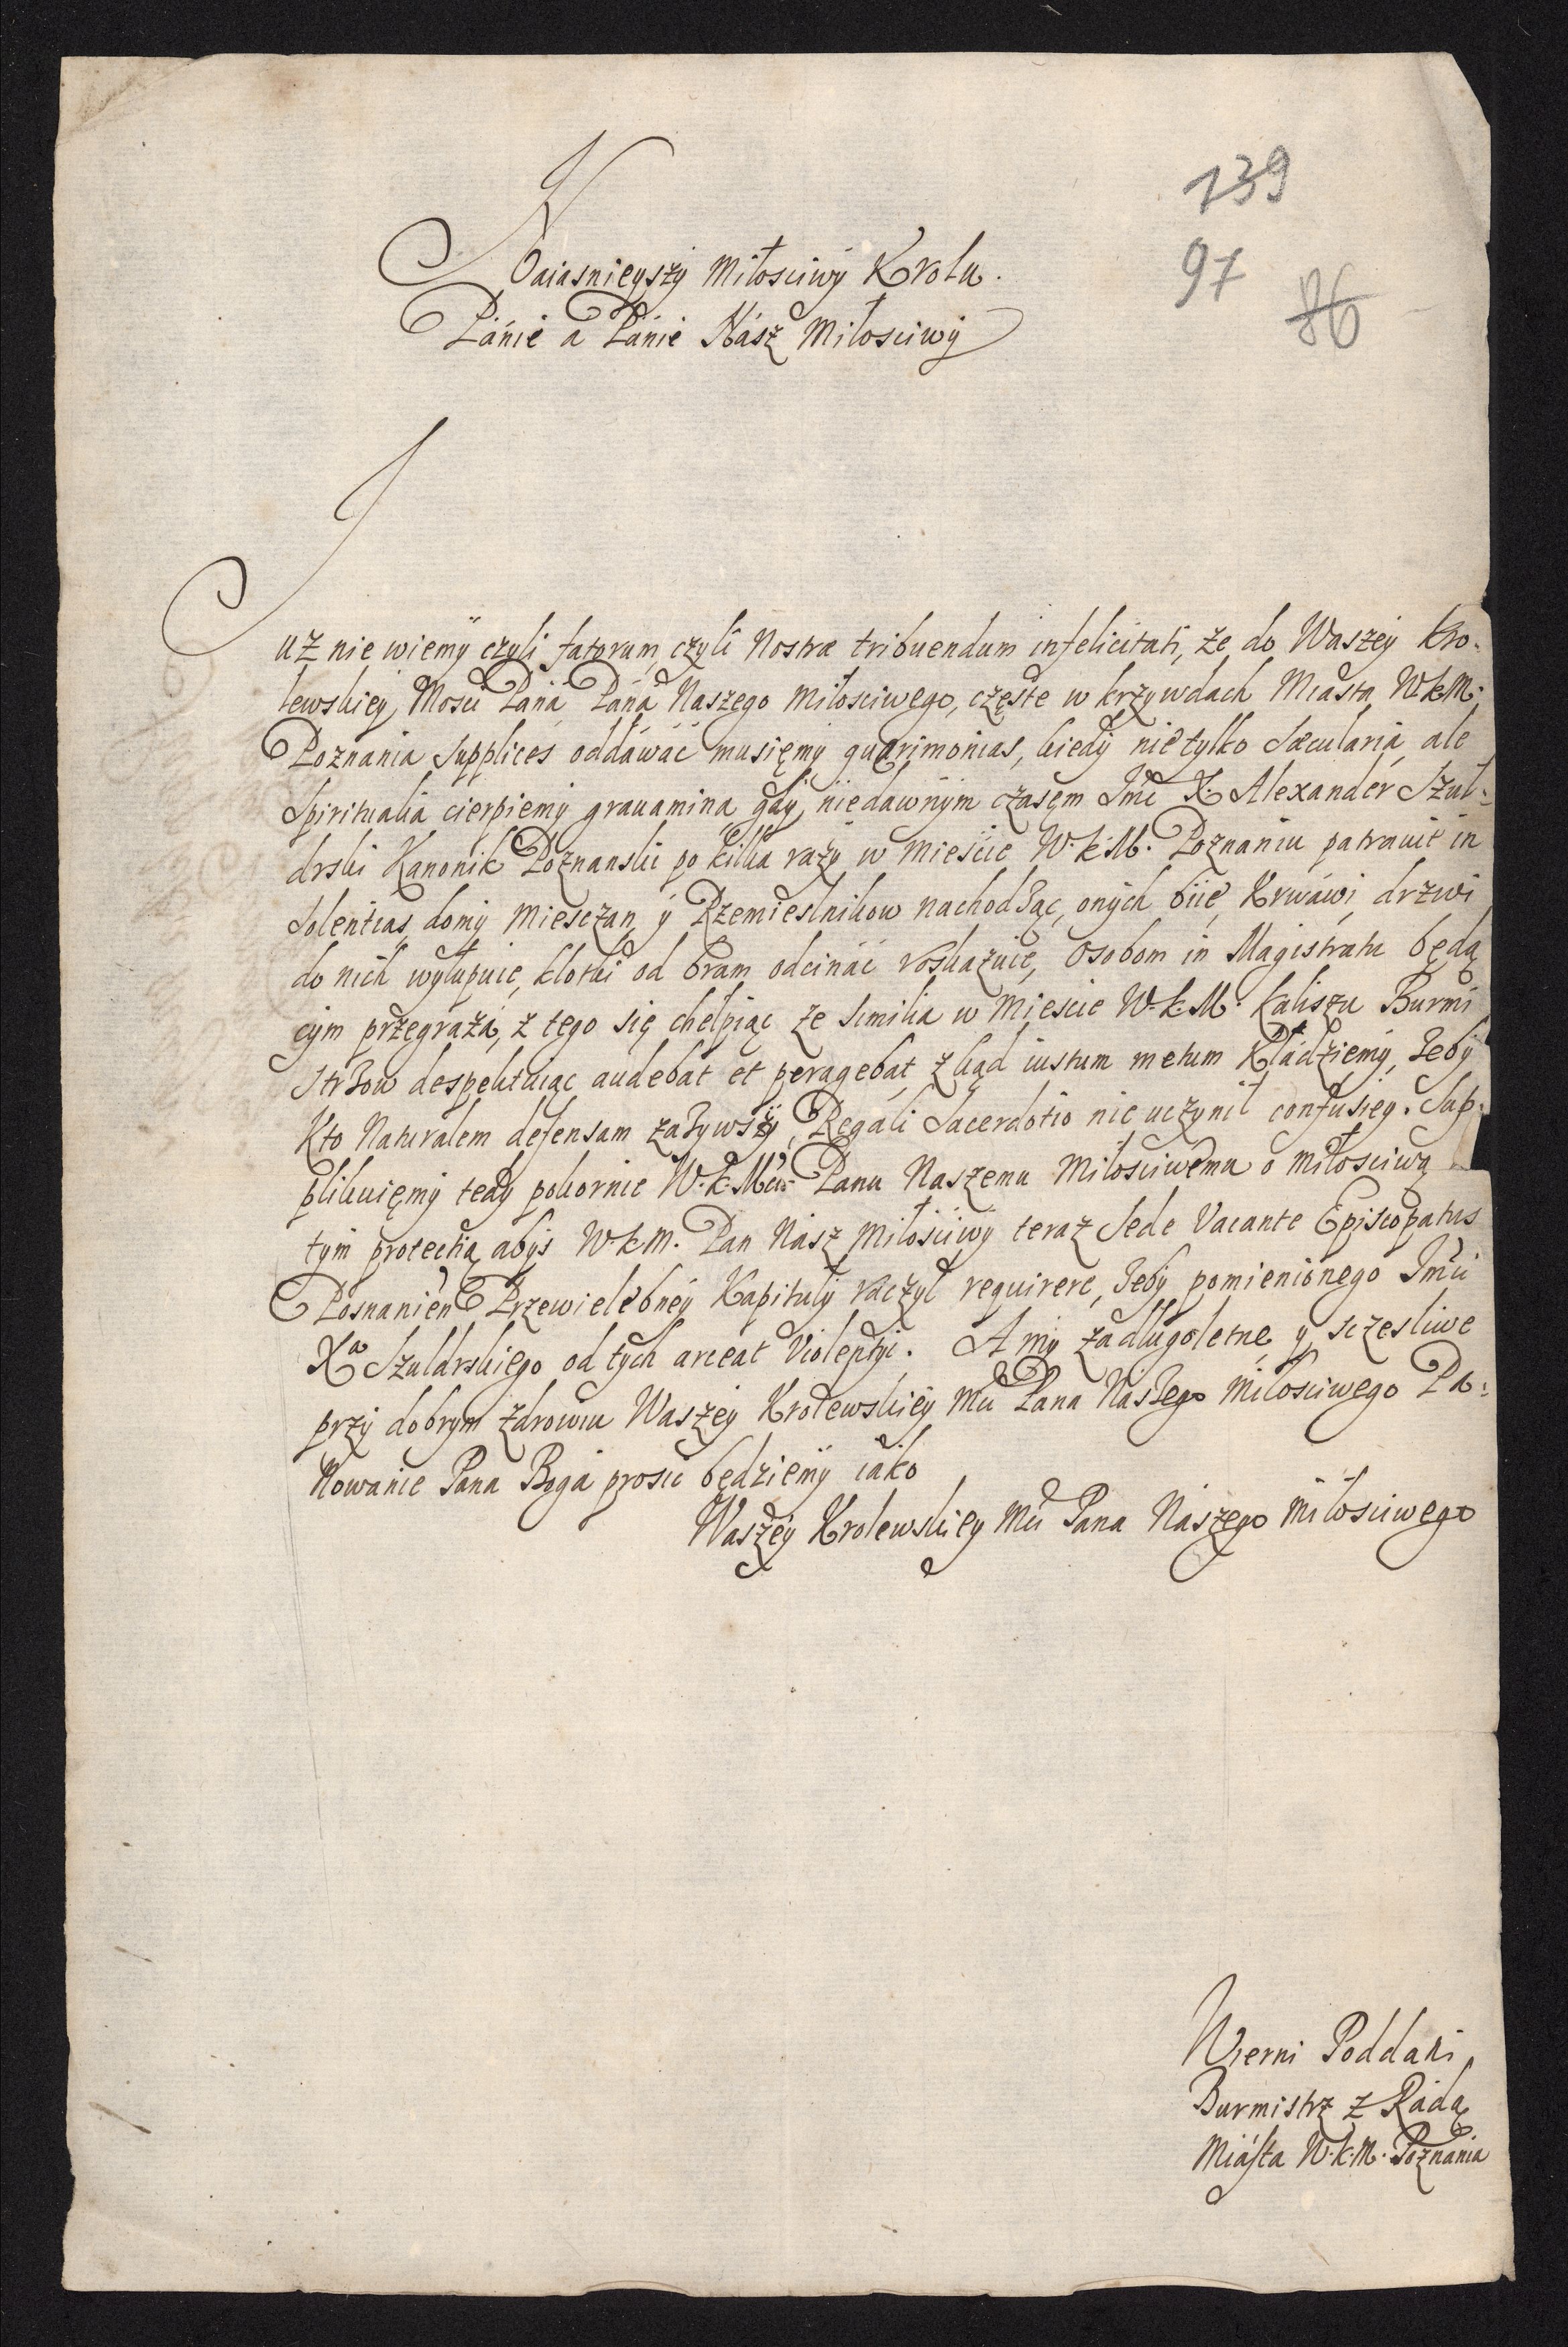 139
97
86
Naiasnieyszy Miłosciwy Krolu.
Pánie a Pánie Nász Miłosciwy
Juz nie wiemy czyli fatorum, czyli Nostræ tribuendum infelicitati, że do Waszey Kro-
lewskiey Mosci Páná Páná Naszego Miłosciwego, częste w krzywdach Miasta W.K.M.
Poznania supplices oddawáć musięmy quærimonias, kiedy nie tylko Sæcularia, ale
Spiritualia cierpiemy grauamina gdy niedawnym czasęm Jmć X. Alexander Szuł-
drski Kanonik Poznanski po kilka razy w Miescie W.K.M. Poznaniu patrauit in
solentias, domy Miesczan y Rzemieslnikow nachodząc, onych biie, Krwáwi, drzwi
do nich wyłupuie, klotki od bram odcináć roskazuie, Osobom in Magistratu będą
cym przegraża, z tego się chełpiąc ze similia w Miescie W.K.M. Kaliszu Burmi
strzow despektuiąc audebat et peragebat, zkąd iustum metum Kładziemy, żeby
Kto Naturalem defensam zażywszy, Regali Sacerdotio nie uczynił confusięy. Sup-
plikuięmy tedy pokornie W.K.Mci Panu Naszemu Miłosciwemu o miłosciwą
tym protectią abyś W.K.M. Pan Nász Miłosciwy teraz Sede Vacante Episcopatus
Posnanien Przewielebney Kapituły raczył requirere, żeby pomienionego Jmci
Xa Szułdrskiego od tych arceat Violentyi. A my za długoletne y sczesliwe
przy dobrym zdrowiu Waszey Krolewskiey Mci Pana Naszego Miłosciwego Pa-
nowanie Pana Boga prosic będziemy iáko
Waszey Krolewskiey Mci Pana Nászego Miłosciwego
Wierni Poddani
Burmistrz z Rádą
Miásta W.K.M. Poznania